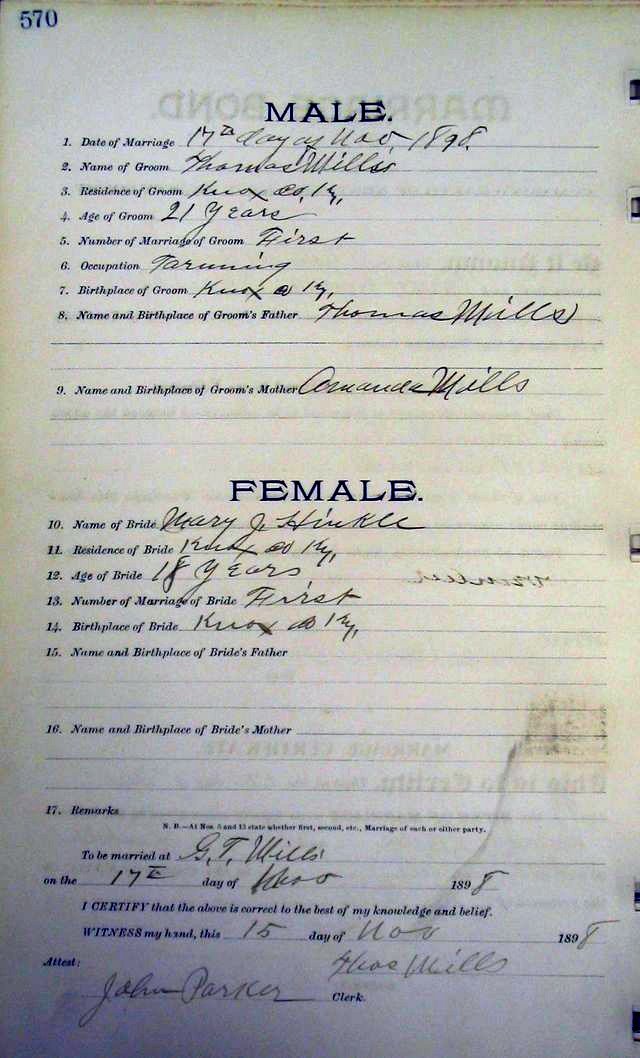 570
MALE.
1. Date of Marriage 17th day of Nov. 1898.
2. Name of Groom Thomas Mills
3. Residence of Groom Knox Co, Ky,
4. Age of Groom 21 Years
5. Number of Marriage of Groom First
6. Occupation Farming
7. Birthplace of Groom Knox Co Ky,
8. Name and Birthplace of Groom's Father Thomas Mills
9. Name and Birthplace of Groom's Mother Amanda Mills
FEMALE.
10. Name of Bride Mary J. Hinkle
11. Residence of Bride Knox Co Ky,
12. Age of Bride 18 Years
13. Number of Marriage of Bride First
14. Birthplace of Bride Knox Co Ky,
15. Name and Birthplace of Bride's Father
16. Name and Birthplace of Bride's Mother
17. Remarks
N. B.—At Nos. 5 and 13 state whether first, second, etc., Marriage of each or either party.
To be married at G. T. Mills
on the 17th day of Nov 1898
I CERTIFY that the above is correct to the best of my knowledge and belief.
WITNESS my hand, this 15 day of Nov 1898
Attest: Thos Mills
John Parker Clerk.